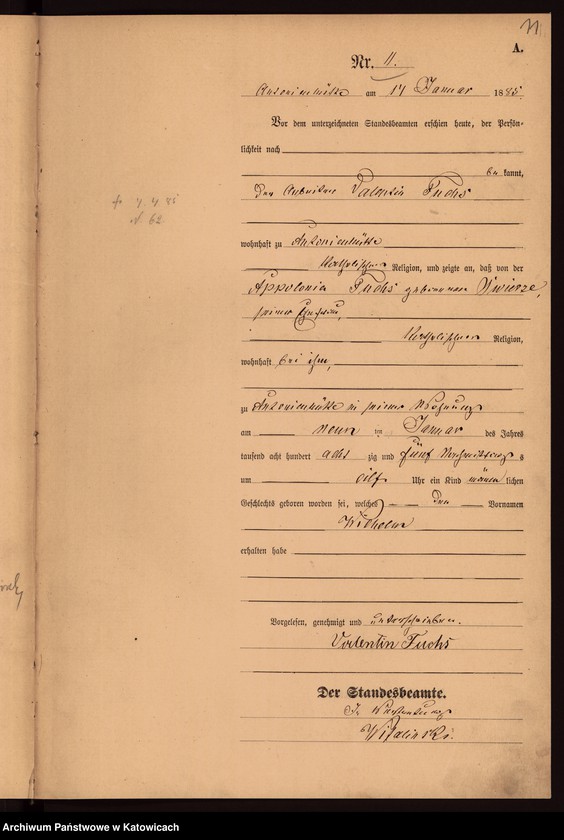 11
A.
Nr. 11.
Antonienhütte am 14 Januar 1885.
Vor dem unterzeichneten Standesbeamten erschien heute, der Persön-
lichkeit nach
be kannt,
der Arbeiter Valentin Fuchs
wohnhaft zu Antonienhütte
katholischer Religion, und zeigte an, daß von der
Appolonia Fuchs geborenen
seiner Ehefrau,
katholischer Religion,
wohnhaft bei ihm,
zu Antonienhütte in seiner Wohnung
am neun ten Januar des Jahres
tausend acht hundert acht zig und fünf Nachmittags s
um eilf Uhr ein Kind männ lichen
Geschlechts geboren worden sei, welches den Vornamen
Wilhelm
erhalten habe
Vorgelesen, genehmigt und unterschrieben.
Valentin Fuchs
Der Standesbeamte.
In Vertretung
Archiwum Państwowe w Katowicach